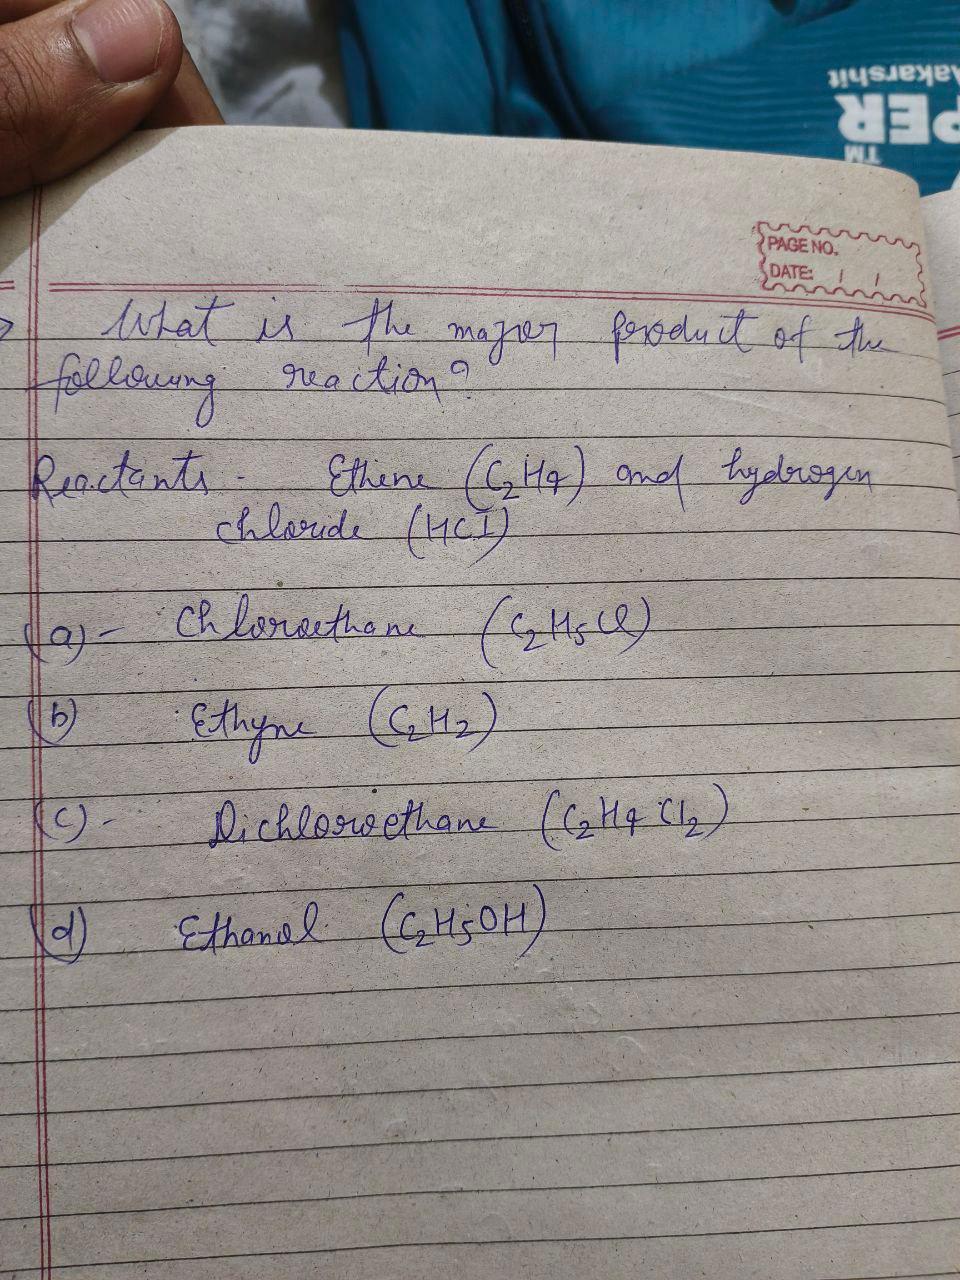 Aakarshit
PER
TM
PAGE NO.
DATE: / /
What is the major product of the
following reaction?
Reactants - Ethene (C2H4) and hydrogen
chloride (HCl)
(a) - Chloroethane (C2H5Cl)
(b) Ethyne (C2H2)
(c) - Dichloroethane (C2H4Cl2)
(d) Ethanol (C2H5OH)